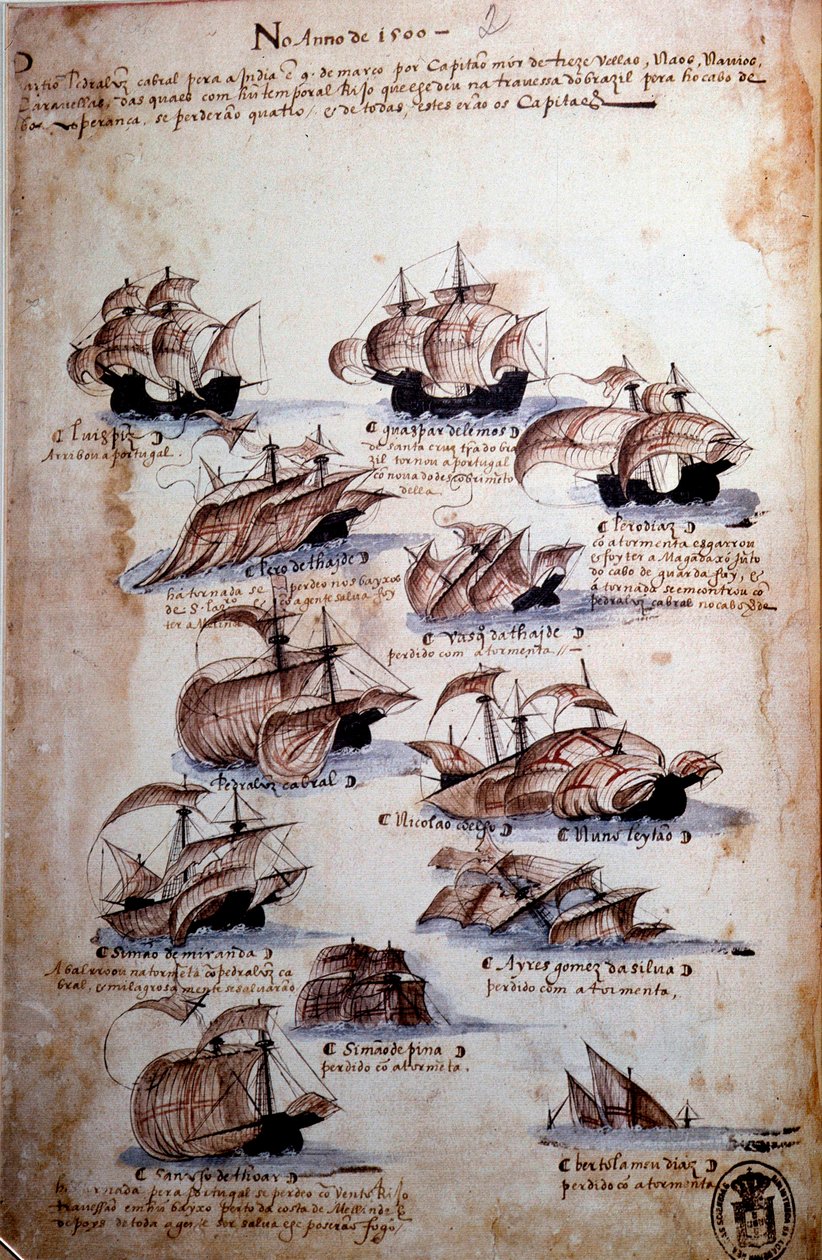 No Anno de 1500 —
2
Partio Pedralvz cabral pera a India ē 9. de março por Capitão mór de treze vellas, Naos, Navios,
Caravellas, das quaes com hū temporal Rijo que lhe deu na travessa do brazil pera ho cabo de
boa esperança, se perderão quatro, e de todas, estes erão os Capitaēs
Luis piz
Arribou a portugal.
guaspar de lemos
de santa cruz trª do bra
zil tornou a portugal
cō nova do descobrimēto
della
Pero diaz
cō a tormenta esgarrou
e foy ter a Magadaxó jūto
do cabo de guarda fuy, e
á tornada se emcontrou cō
pedralvz cabral no cabo
Pero de thaide
há tornada se perdeo nos bayxos
de S. lazº e cō a gente salva foy
ter a Melinde
Vasqº dathaide
perdido com a tormenta
Pedralvz cabral
Nicolao coelho
Nuno leytão
Simão de miranda
Abalrroou na tormēta cō pedralvz ca
bral, e milagrosamente se salvarão
Ayres gomez da silva
perdido com a tormenta,
Simão de pina
perdido cō a tormēta.
Sancho de thoar
tornada pera portugal se perdeo cō vento Rijo
travessão em hū bayxo perto da costa de Mellinde e
depoys de toda a gente ser salva lhe poserão fogo
bertolameu diaz
perdido cō a tormenta